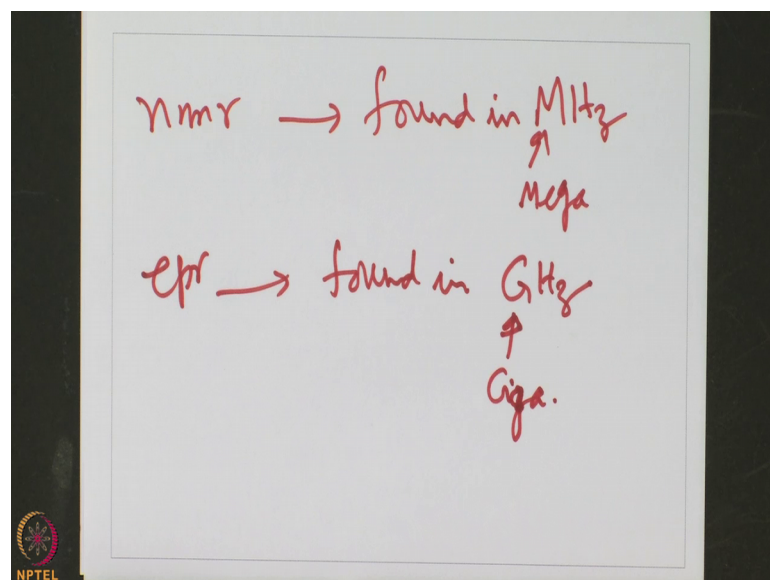 nmr → found in MHz
Mega
epr → found in GHz
Giga.
NPTEL